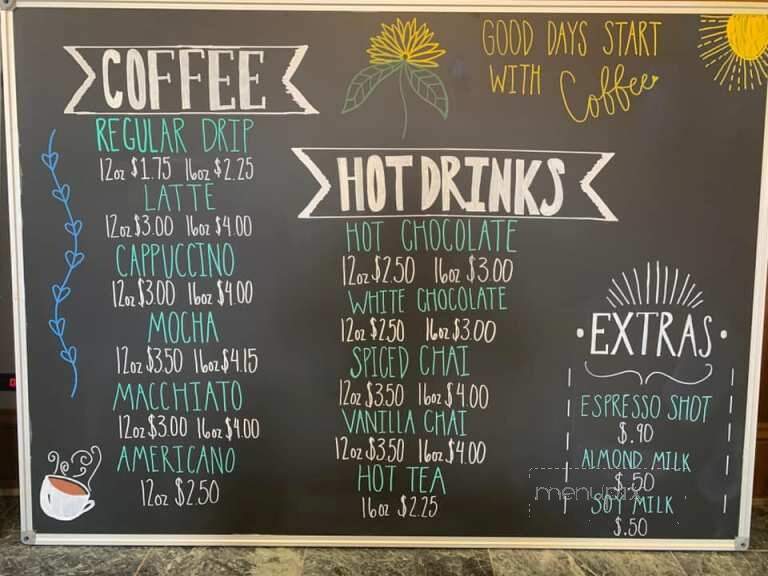 GOOD DAYS START
WITH Coffee
COFFEE
REGULAR DRIP
12oz $1.75 16oz $2.25
LATTE
12oz $3.00 16oz $4.00
CAPPUCCINO
12oz $3.00 16oz $4.00
MOCHA
12oz $3.50 16oz $4.15
MACCHIATO
12oz $3.00 16oz $4.00
AMERICANO
12oz $2.50
HOT DRINKS
HOT CHOCOLATE
12oz $2.50 16oz $3.00
WHITE CHOCOLATE
12oz $2.50 16oz $3.00
SPICED CHAI
12oz $3.50 16oz $4.00
VANILLA CHAI
12oz $3.50 16oz $4.00
HOT TEA
16oz $2.25
• EXTRAS •
ESPRESSO SHOT
$.90
ALMOND MILK
$.50
SOY MILK
$.50
menupix